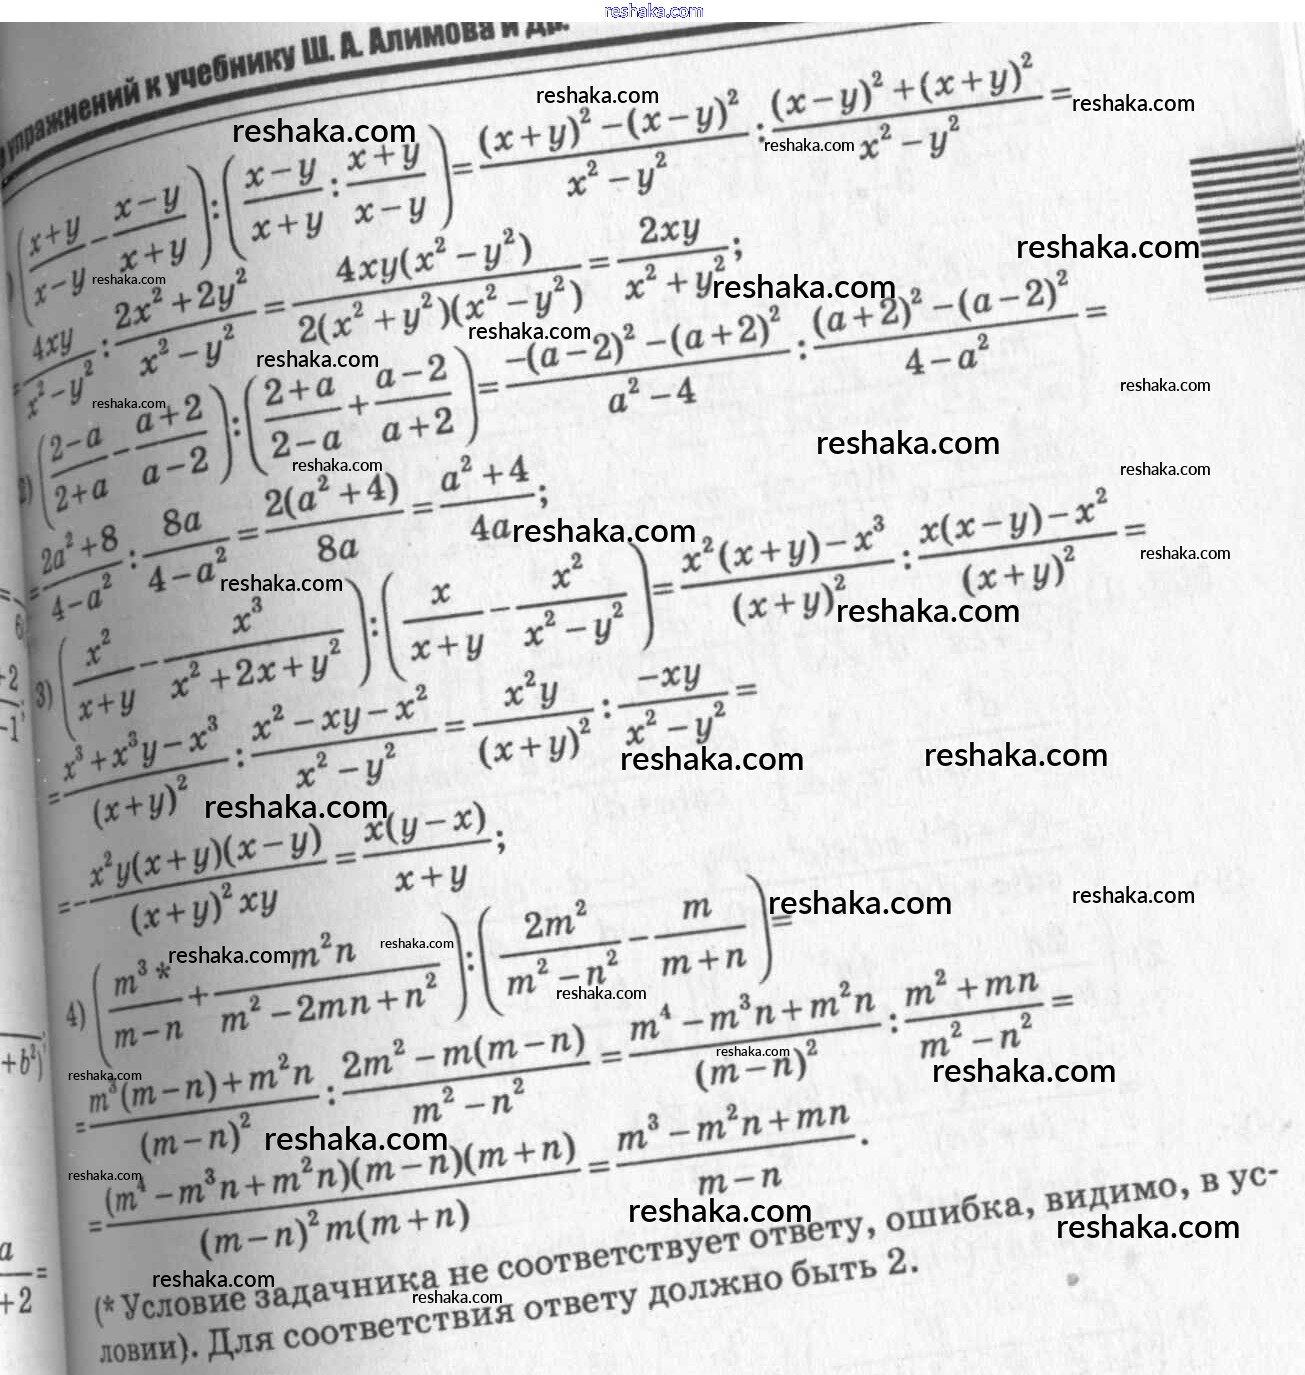 reshaka.com
упражнений к учебнику Ш. А. Алимова и др.
((x+y)/(x−y) − (x−y)/(x+y)) : ((x−y)/(x+y) : (x+y)/(x−y)) = ((x+y)² −(x−y)²)/(x² − y²) : ((x−y)² +(x+y)²)/(x² − y²) =
= 4xy/(x² − y²) : (2x² + 2y²)/(x² − y²) = 4xy(x² − y²)/(2(x² + y²)(x² − y²)) = 2xy/(x² + y²);
2) ((2−a)/(2+a) − (a+2)/(a−2)) : ((2+a)/(2−a) + (a−2)/(a+2)) = (−(a−2)² −(a+2)²)/(a² − 4) : ((a+2)² −(a−2)²)/(4 − a²) =
= (2a² +8)/(4 − a²) : 8a/(4 − a²) = 2(a² +4)/8a = (a² +4)/4a;
3) (x²/(x+y) − x³/(x² +2x+y²)) : (x/(x+y) − x²/(x² − y²)) = (x²(x+y)−x³)/(x+y)² : (x(x−y)−x²)/(x+y)² =
= (x³ + x³y − x³)/(x+y)² : (x² − xy − x²)/(x² − y²) = x²y/(x+y)² : −xy/(x² − y²) =
= − x²y(x+y)(x−y)/((x+y)² xy) = x(y−x)/(x+y);
4) (m³ */(m−n) + m²n/(m² −2mn+n²)) : (2m²/(m² − n²) − m/(m+n)) =
= (m³(m−n)+m²n)/(m−n)² : (2m² −m(m−n))/(m² − n²) = (m⁴ − m³n + m²n)/(m−n)² : (m² + mn)/(m² − n²) =
= (m⁴ − m³n + m²n)(m−n)(m+n)/((m−n)² m(m+n)) = (m³ − m²n + mn)/(m−n).
(* Условие задачника не соответствует ответу, ошибка, видимо, в ус-
ловии). Для соответствия ответу должно быть 2.